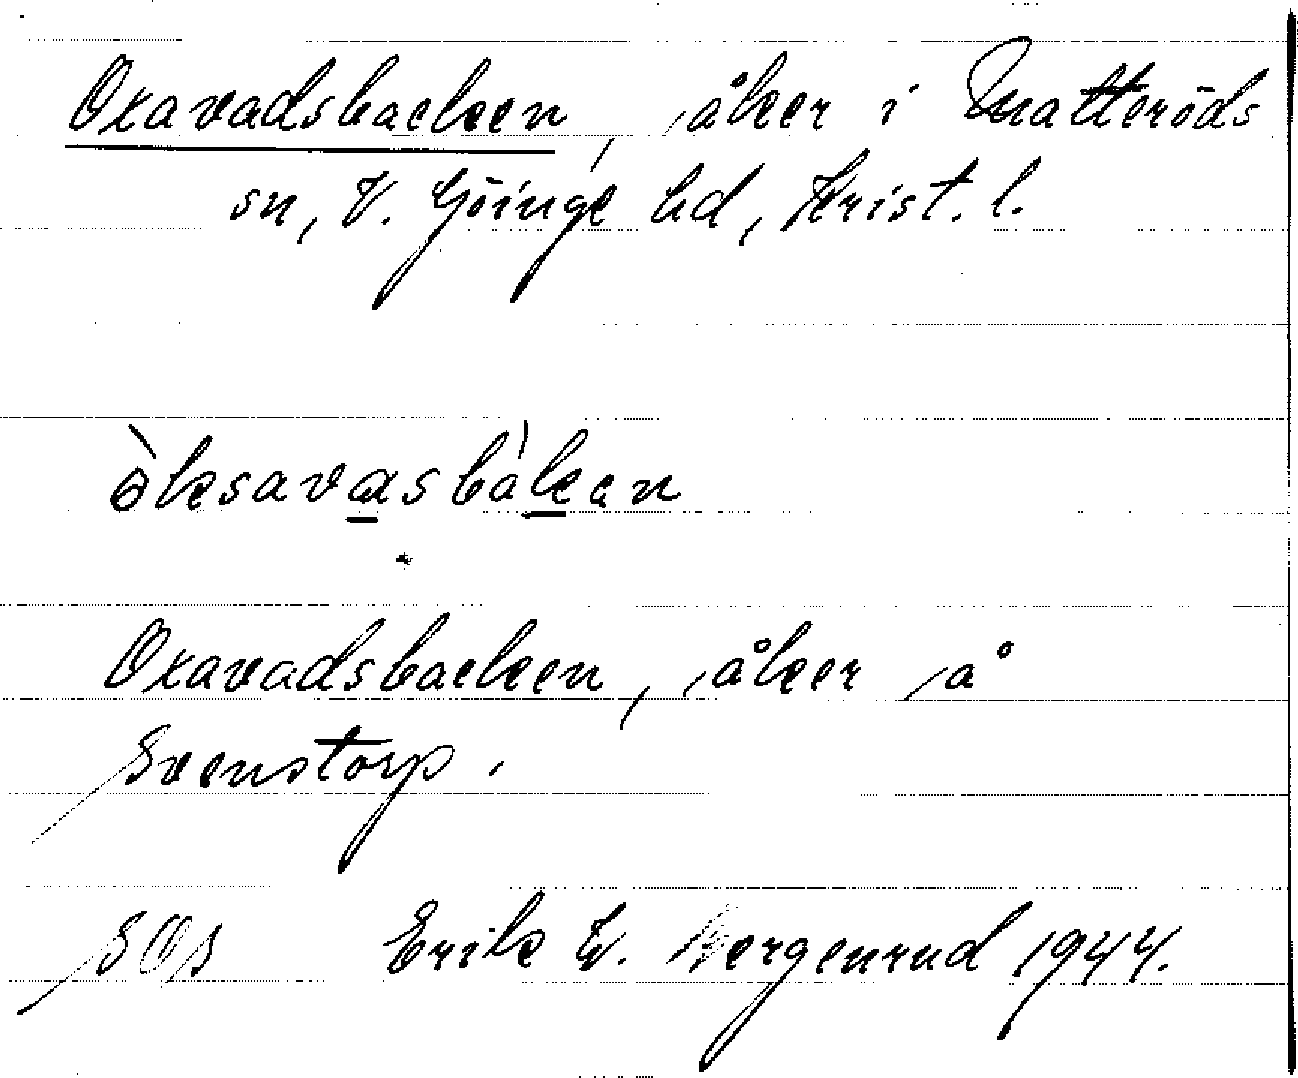 Oxavadsbacken, åker i Matteröds
sn, V. Göinge hd, Krist. l.
òksavasbàkan
Oxavadsbacken, åker å
Svenstorp.
SOS Erik W. Bergenrud 1944.